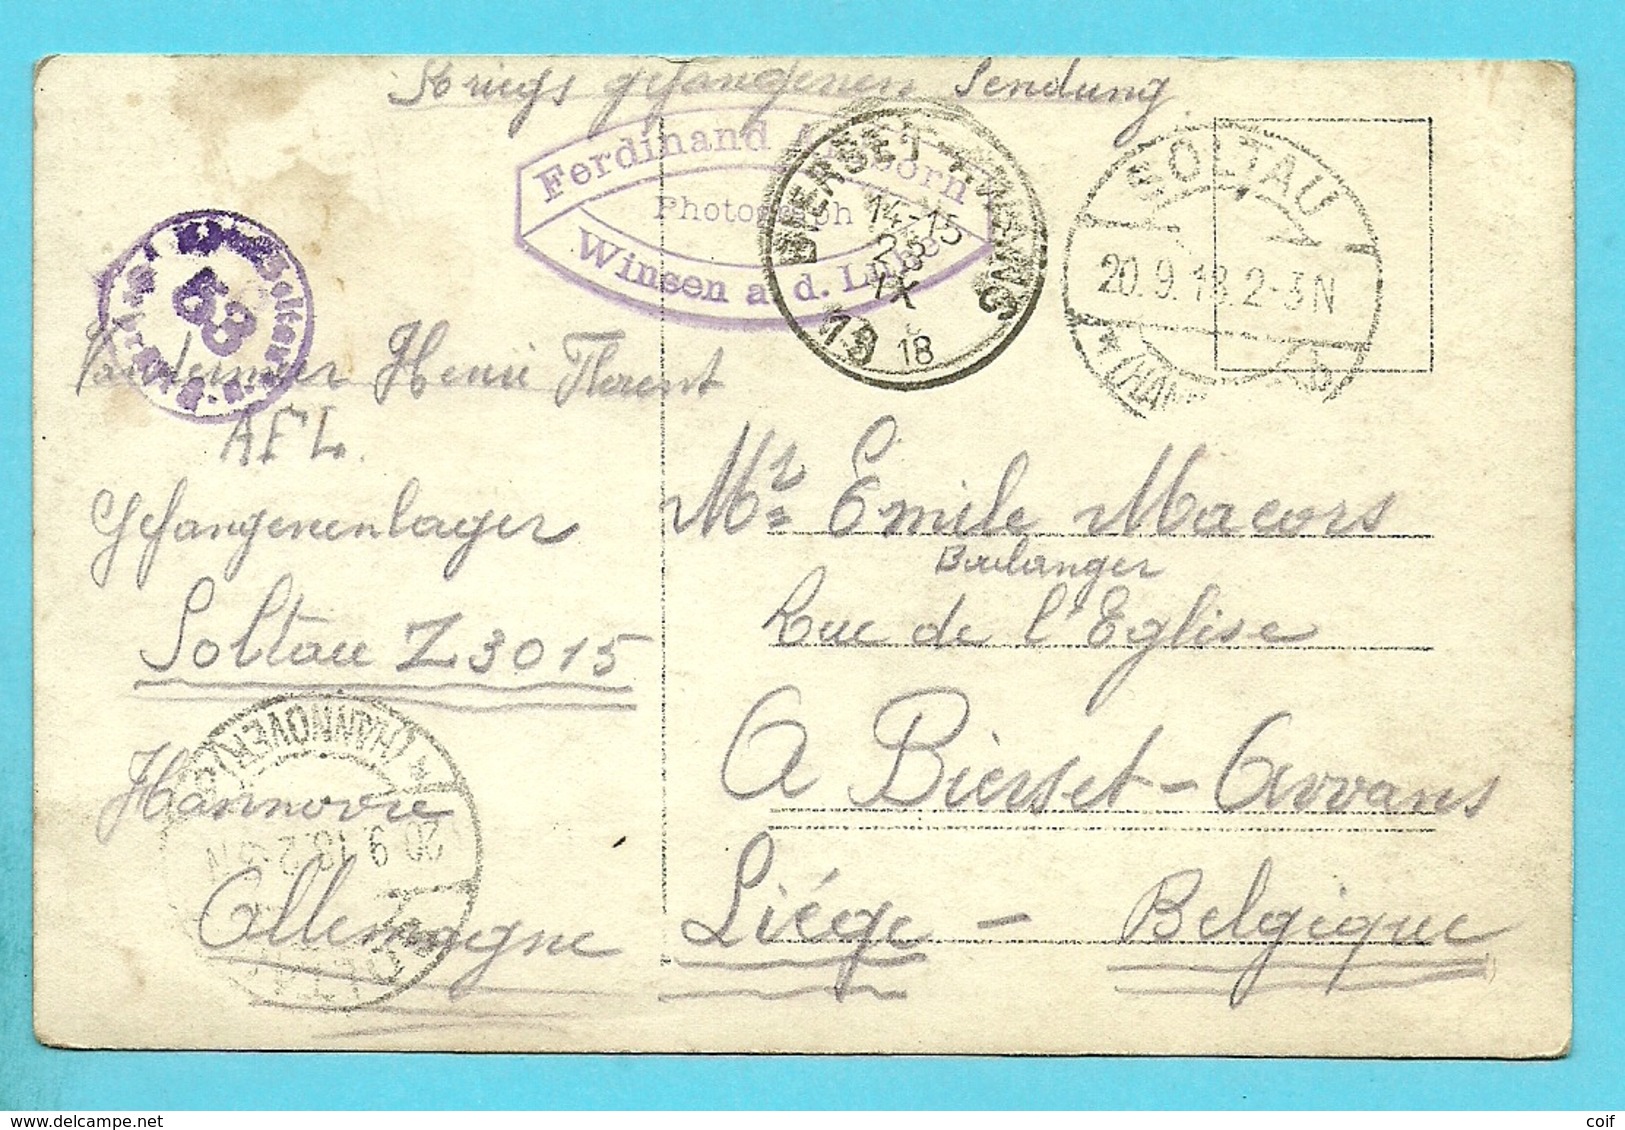 Kriegsgefangenen Sendung
Ferdinand
Photograph
Winsen a. d. Luhe
BIERSET-AWANS
14-15
23
IX
1918
SOLTAU
20.9.18.2-3N
*(HANN
b
53
Henri
AFL.
Gefangenenlager
Soltau Z 3015
Hannovre
Allemagne
(HANNOVER)
20.9.18.2-3N
SOLTAU
Mr Emile Macors
Boulanger
Rue de l'Eglise
A Bierset-Awans
Liége - Belgique
coif